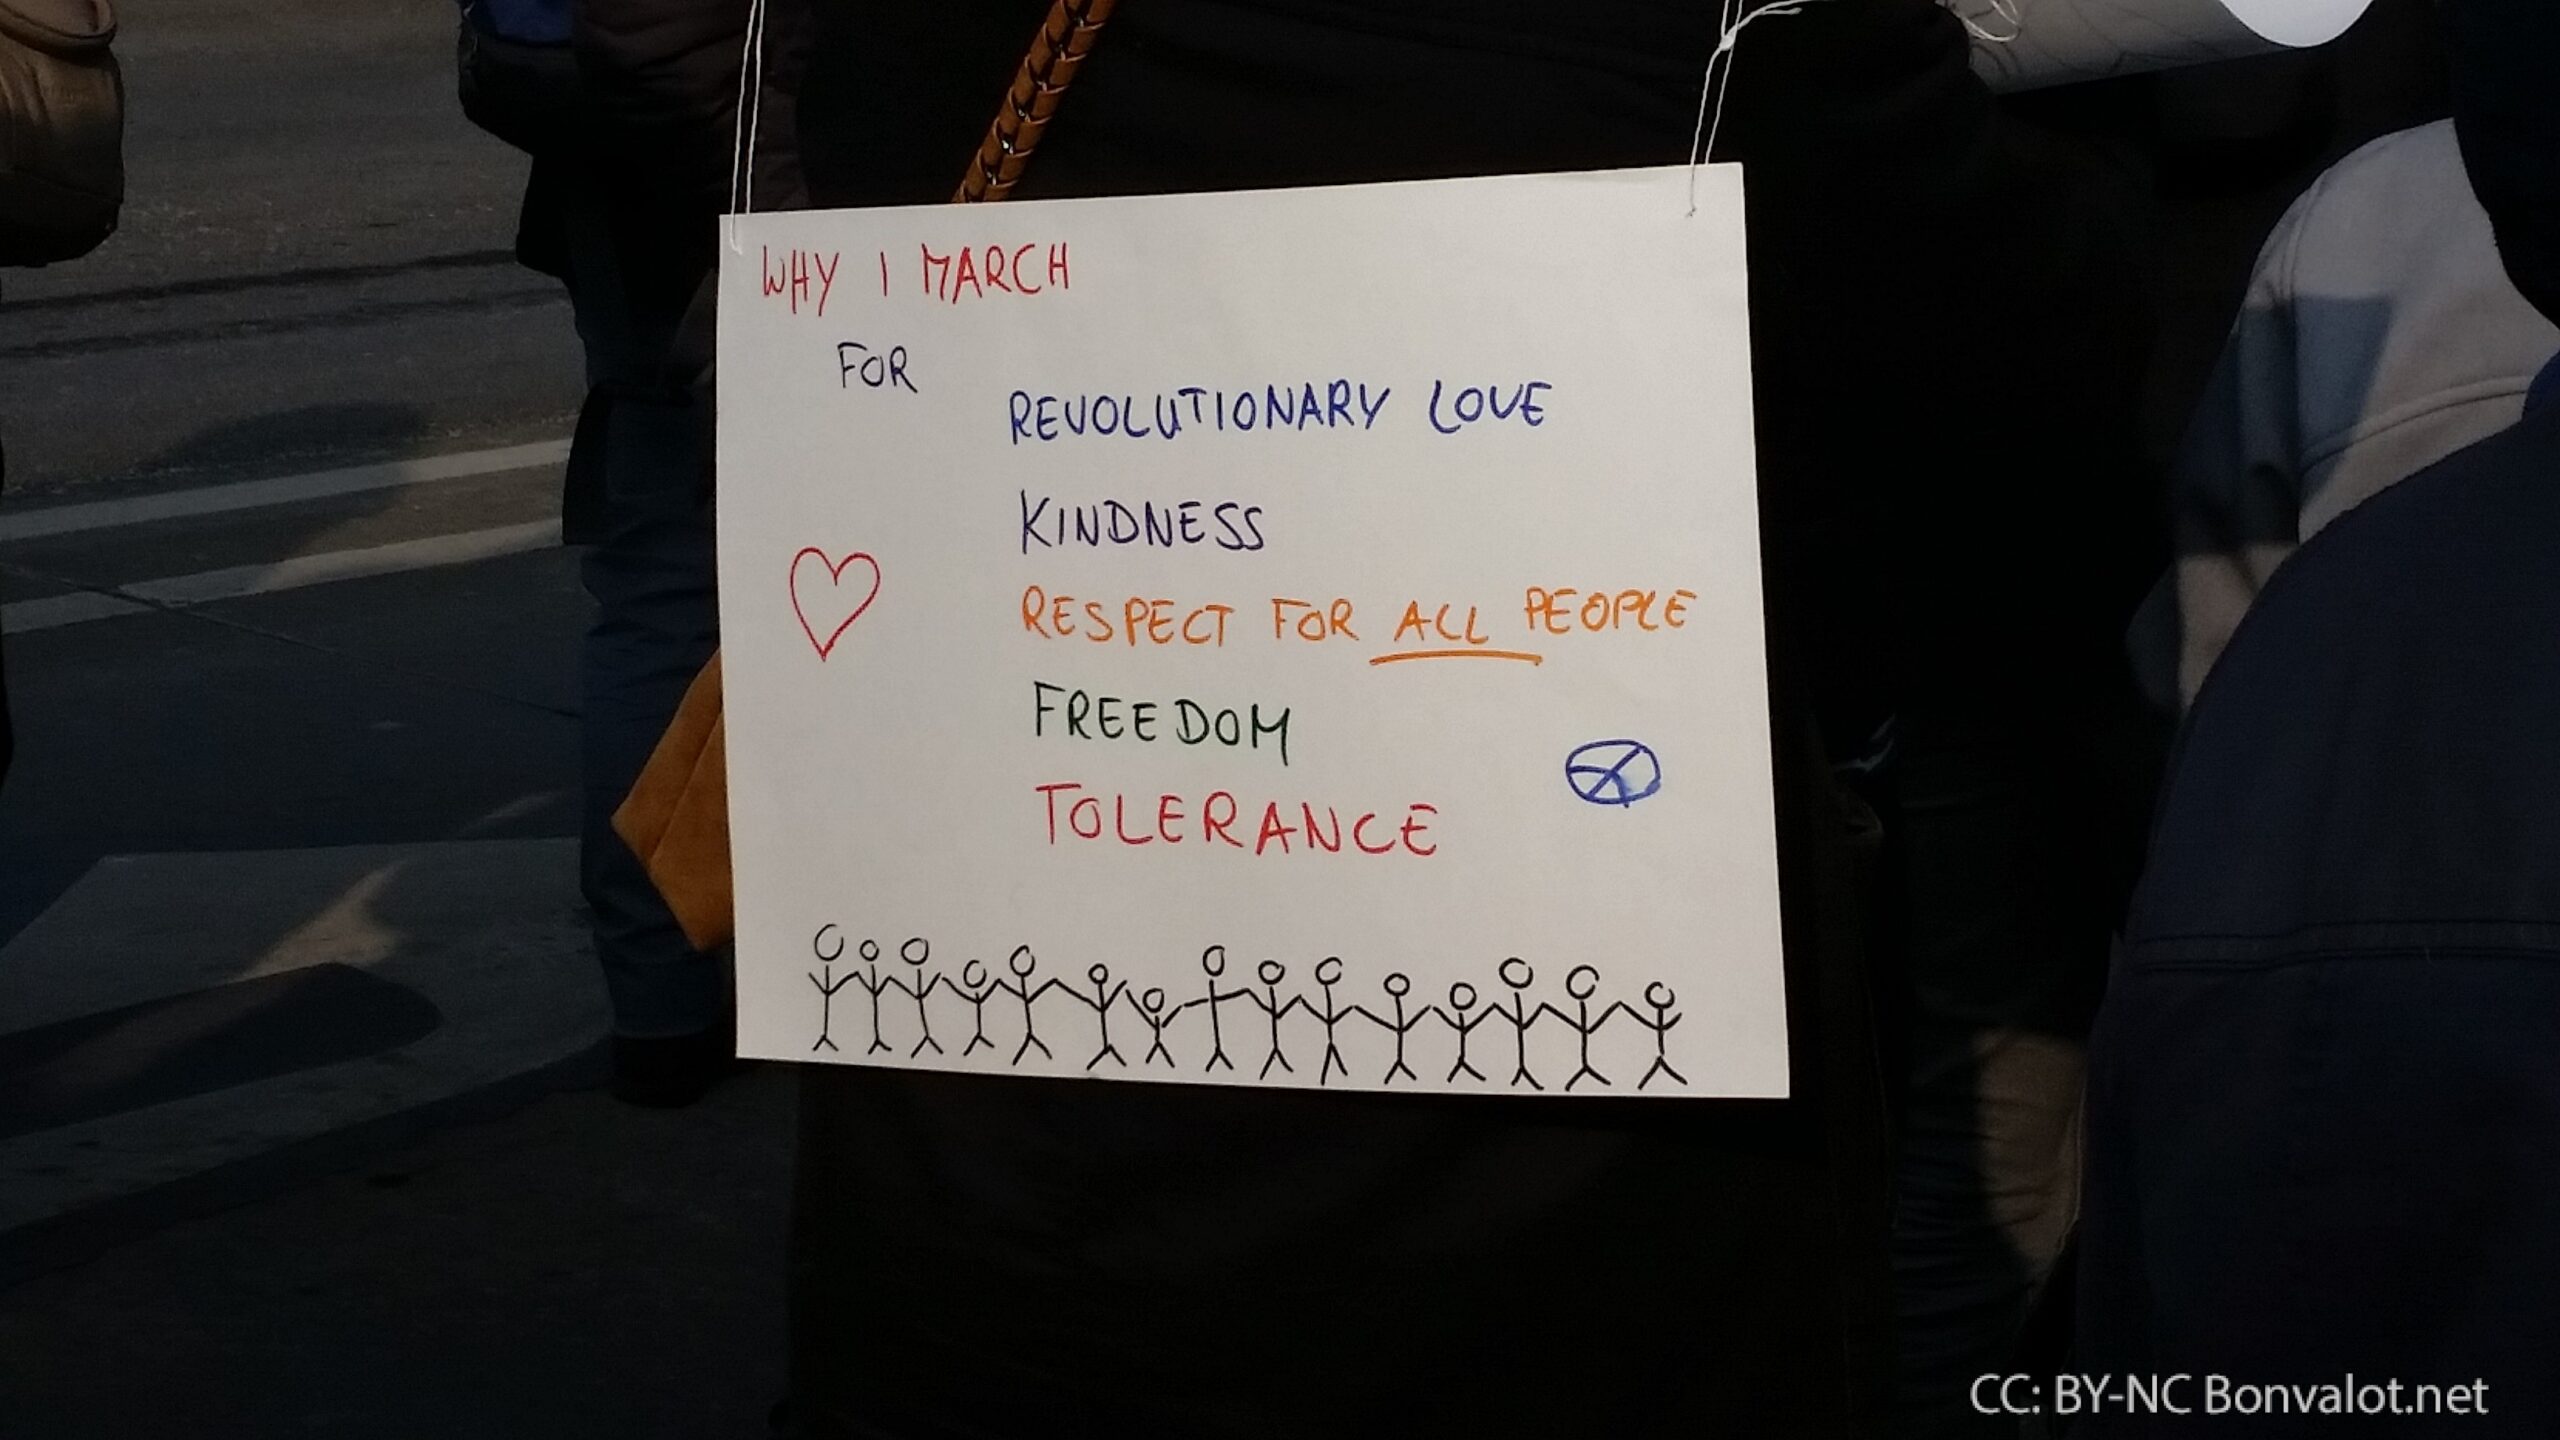 WHY I MARCH
FOR
REVOLUTIONARY LOVE
KINDNESS
RESPECT FOR ALL PEOPLE
FREEDOM
TOLERANCE
CC: BY-NC Bonvalot.net